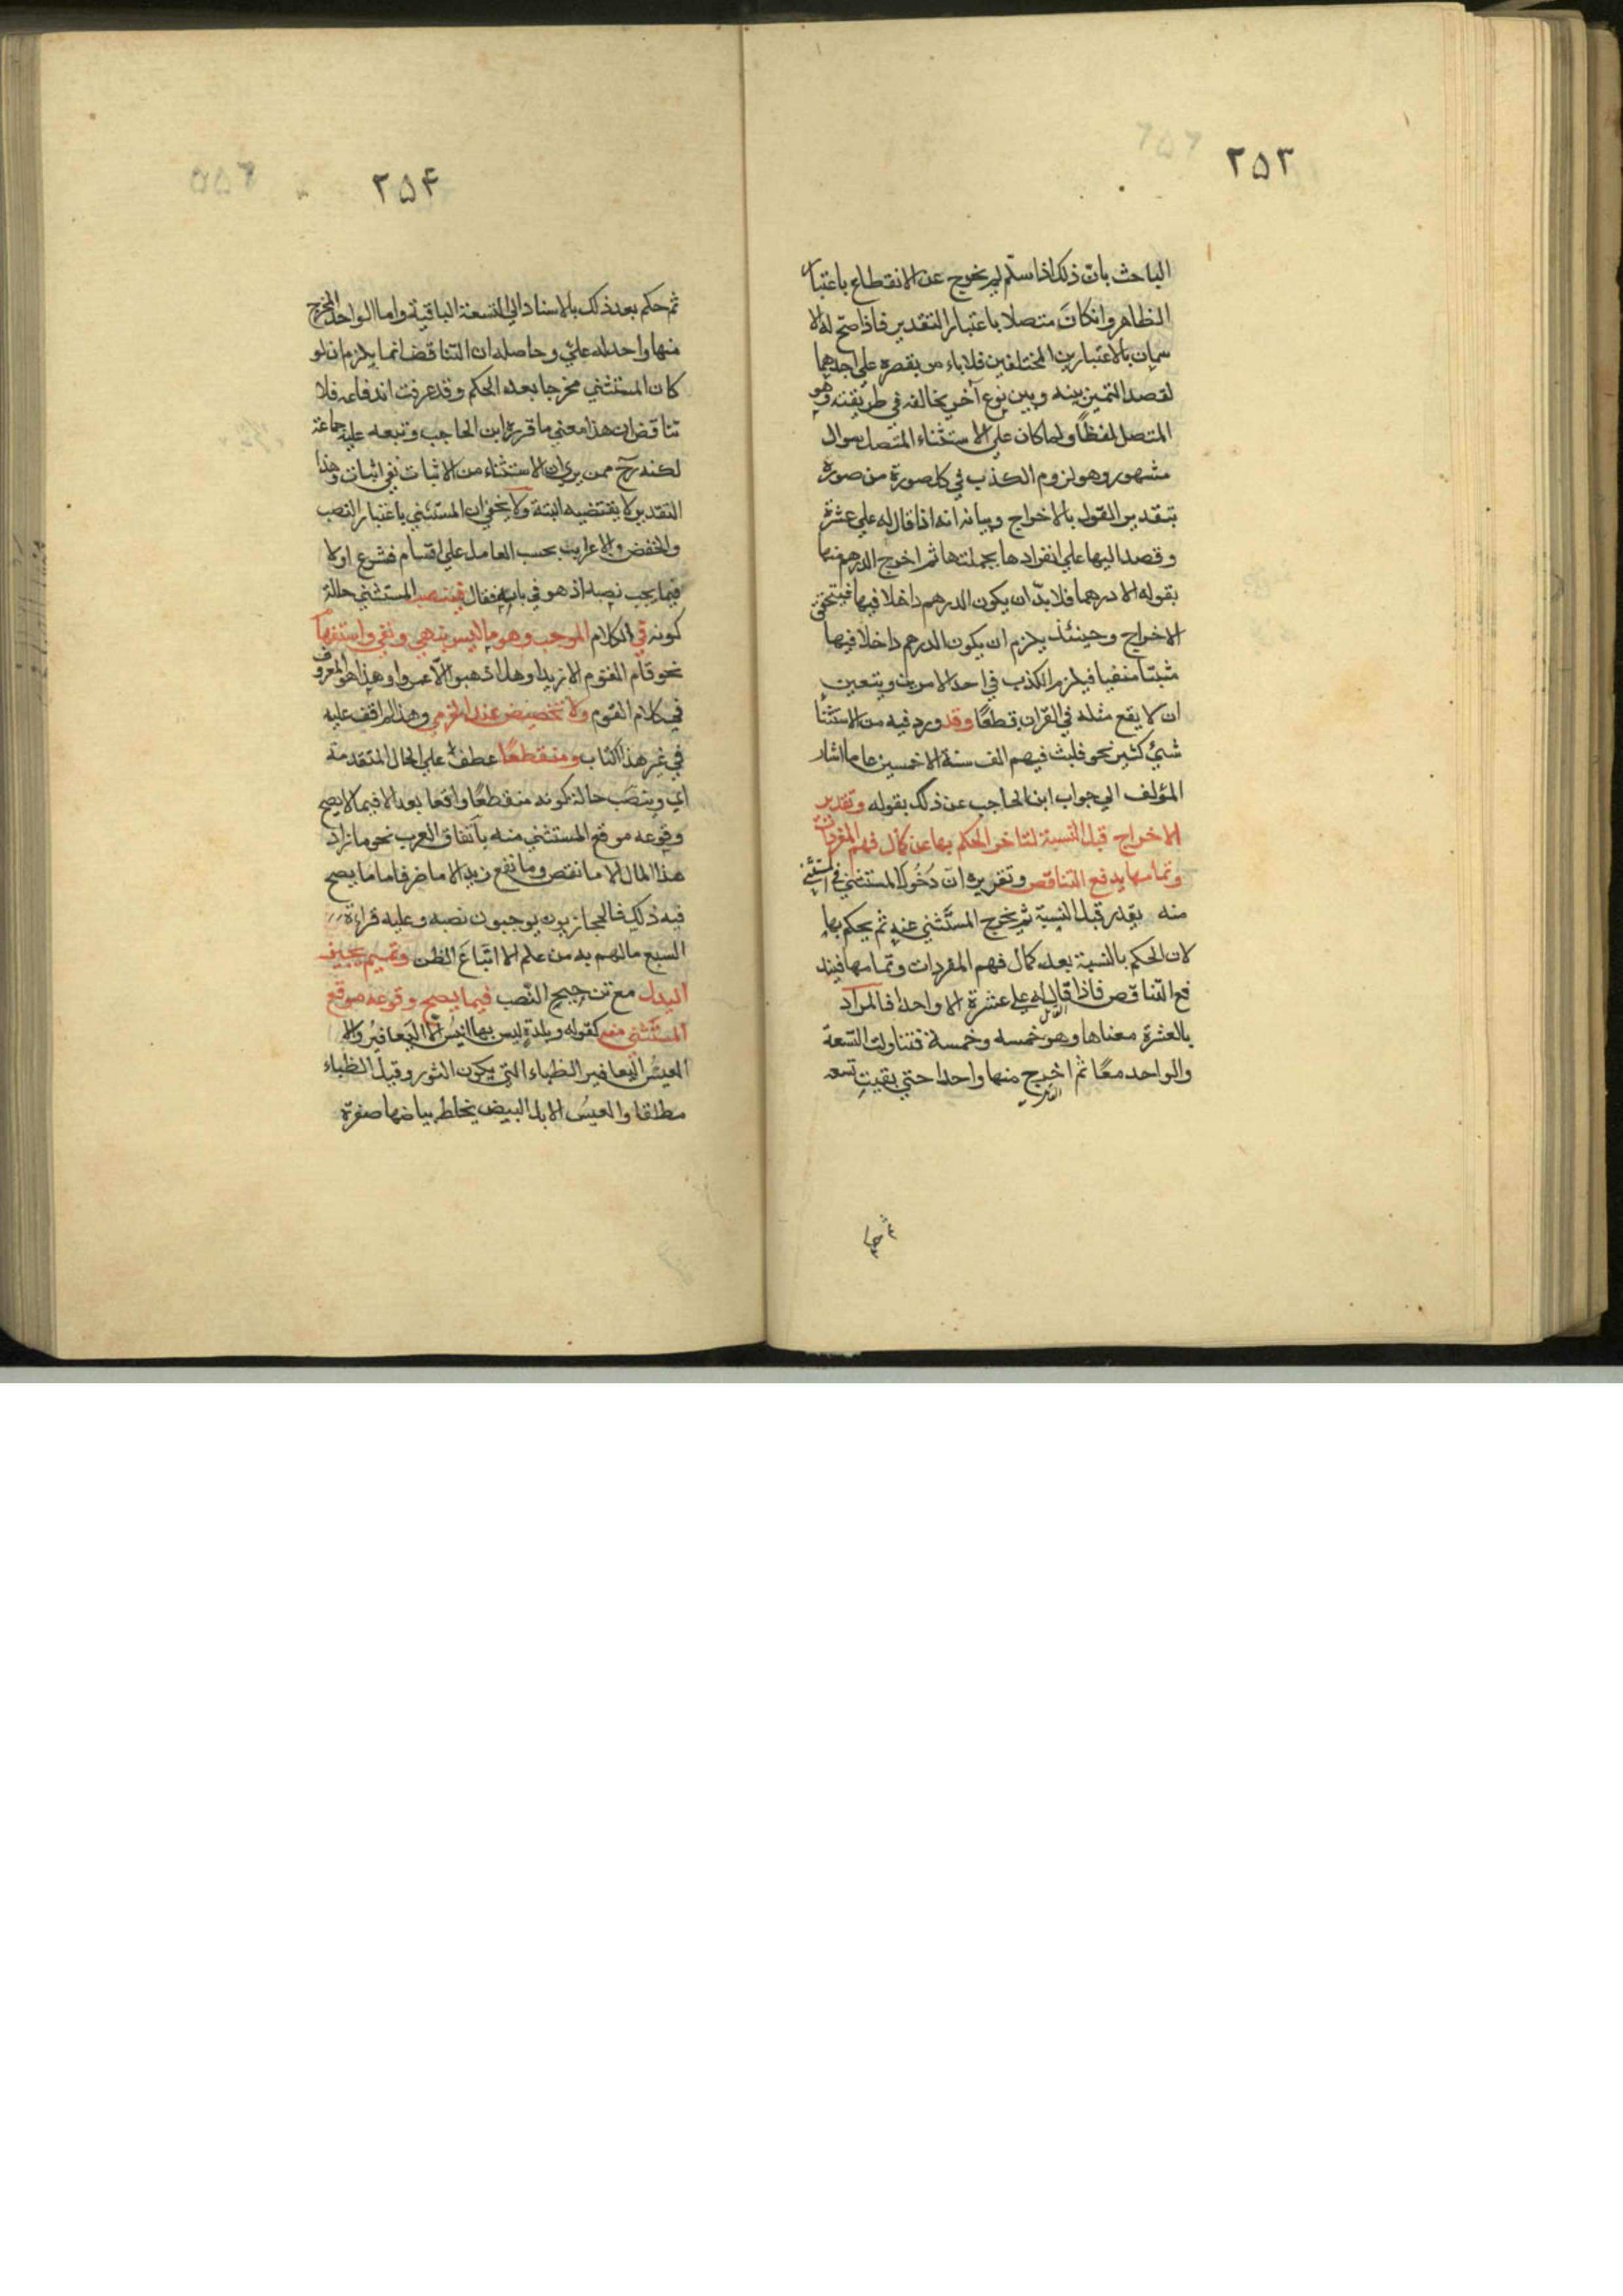 ٢٥٣
الباحث بانّ ذلك اذا سلّم لم يخرج عن الانقطاع باعتبار
الظاهر وانكانَ متصلا باعتبار التقدير فاذا صحّ له الا
سمان بالاعتبارين المختلفين فلا باء س بقصره علي احدهما
لقصد التميز بينه وبين نوع آخر يخالفه في طريقته وهو
المتصل لفظاً ولما كان علي الاستثناء المتصل سوال
مشهور وهو لزوم الكذب في كل صورة من صوره
بتقدير القول بالاخراج وبيانه انه اذا قال له علي عشرة
وقصد اليها علي انفرادها بجملتها ثم اخرج الدرهم منها
بقوله الا درهما فلا بدّ ان يكون الدرهم داخلا فيها فيتحقق
الاخراج وحينئذ يلزم ان يكون الدرهم داخلا فيها
مثبتا منفيا فيلزم الكذب في احد الامرين ويتعين
ان لا يقع مثله في القران قطعًا وقد ورد فيه من الاستثنأ
شيئ كثير نحو فلبث فيهم الف سنة الا خمسين عاما اشار
المؤلف الي جواب ابن الحاجب عن ذلك بقوله وتقدير
الاخراج قبل النسبة لتاخر الحكم بها عن كمال فهم المفردات
وتمامها يدفع التناقص وتقريره انّ دُخُول المستثني في المستثني
منه يقدر قبل النسبة ثم يخرج المستثني عنه ثم يحكم بها
لان الحكم بالنسبة بعد كمال فهم المفردات وتمامها فيند
فع التناقص فاذا قال له علي عشرة الا واحدا فالمراد
بالعشرة معناها وهو خمسه وخمسة فتناولت التسعة
والواحد معًا ثم اخرج منها واحدا حتي بقيت تسعه
ثم حكم
٢٥۴
ثم حكم بعد ذلك بالاسناد الي التسعة الباقية واما الواحد المخرج
منها واحد له عليّ وحاصله ان التناقض انما يلزم ان لو
كان المستثني مخرجا بعد الحكم وقد عرفت اندفاعه فلا
تناقض ان هذا معني ما قرره ابن الحاجب وتبعه عليه جماعة
لكنه رح ممن يري ان الاستثناء من الاثبات نفي اثبات وهذا
التقدير لا يقتضيه البتة ولا يخفي ان المستثني باعتبار النصب
والخفض والاعراب بحسب العامل علي اقسام فشرع اولا
فيما يجب نصبه اذ هو في بابه فقال فينصب المستثني حالة
كونه في الكلام الموجب وهو ما ليس بنهي ونفي واستفهام
نحو قام القوم الا زيدا وهل ذهبوا الّا عمروا وهذا هو المعروف
في كلام القوم ولا تخصيص عند المخزمي وهذا لم اقف عليه
في غير هذا الكتاب ومنقطعًا عطفٌ علي الحال المتقدمة
اي وينصَب حالة كونه منقطعًا واقعا بعد الا فيما لا يصح
وقوعه موقع المستثني منه بأتفاق العرب نحو ما زاد
هذا المال الا ما نقص وما نفع زيد الا ما ضر فاما ما يصح
فيه ذلك فالحجازيون يوجبون نصبه وعليه قراءة
السبع ما لهم به من علم الا اتباعَ الظن وتميم يجيز
البدل مع ترجيح النّصب فيما يصح وقوعه موقع
المستثني منه كقوله وبلدةٍ ليس بها انيسُ الّا اليَعافيرُ والا
العيسُ اليعافير الظباء التي يكون الثور وقيل الظباء
مطلقا والعيسُ الابل البيض يخلط بياضها صفرة